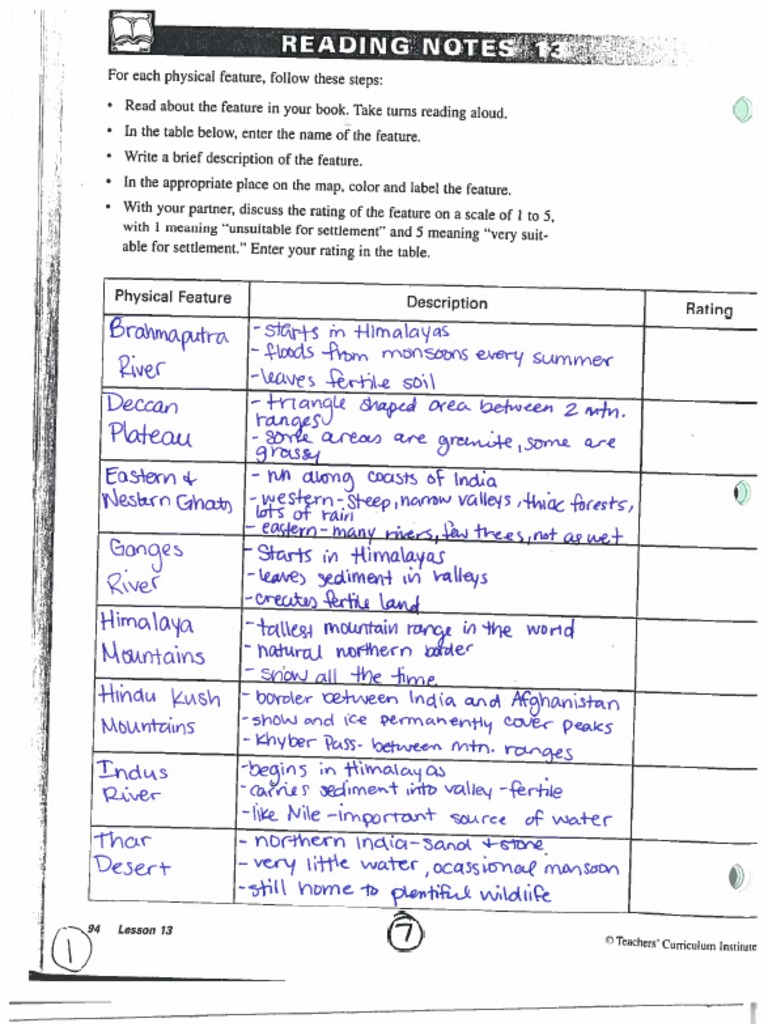 READING NOTES 13
For each physical feature, follow these steps:
• Read about the feature in your book. Take turns reading aloud.
• In the table below, enter the name of the feature.
• Write a brief description of the feature.
• In the appropriate place on the map, color and label the feature.
• With your partner, discuss the rating of the feature on a scale of 1 to 5,
with 1 meaning "unsuitable for settlement" and 5 meaning "very suit-
able for settlement." Enter your rating in the table.
Physical Feature
Description
Rating
Brahmaputra
River
- starts in Himalayas
- floods from monsoons every summer
- leaves fertile soil
Deccan
Plateau
- triangle shaped area between 2 mtn.
ranges
- some areas are granite, some are
grassy
Eastern &
Western Ghats
- run along coasts of India
- western - steep, narrow valleys, thick forests,
lots of rain
- eastern - many rivers, few trees, not as wet
Ganges
River
- Starts in Himalayas
- leaves sediment in valleys
- creates fertile land
Himalaya
Mountains
- tallest mountain range in the world
- natural northern border
- snow all the time
Hindu Kush
Mountains
- border between India and Afghanistan
- snow and ice permanently cover peaks
- Khyber Pass - between mtn. ranges
Indus
River
- begins in Himalayas
- carries sediment into valley - fertile
- like Nile - important source of water
Thar
Desert
- northern India - sand & stone
- very little water, ocassional monsoon
- still home to plentiful wildlife
94 Lesson 13
1
7
© Teachers' Curriculum Institute